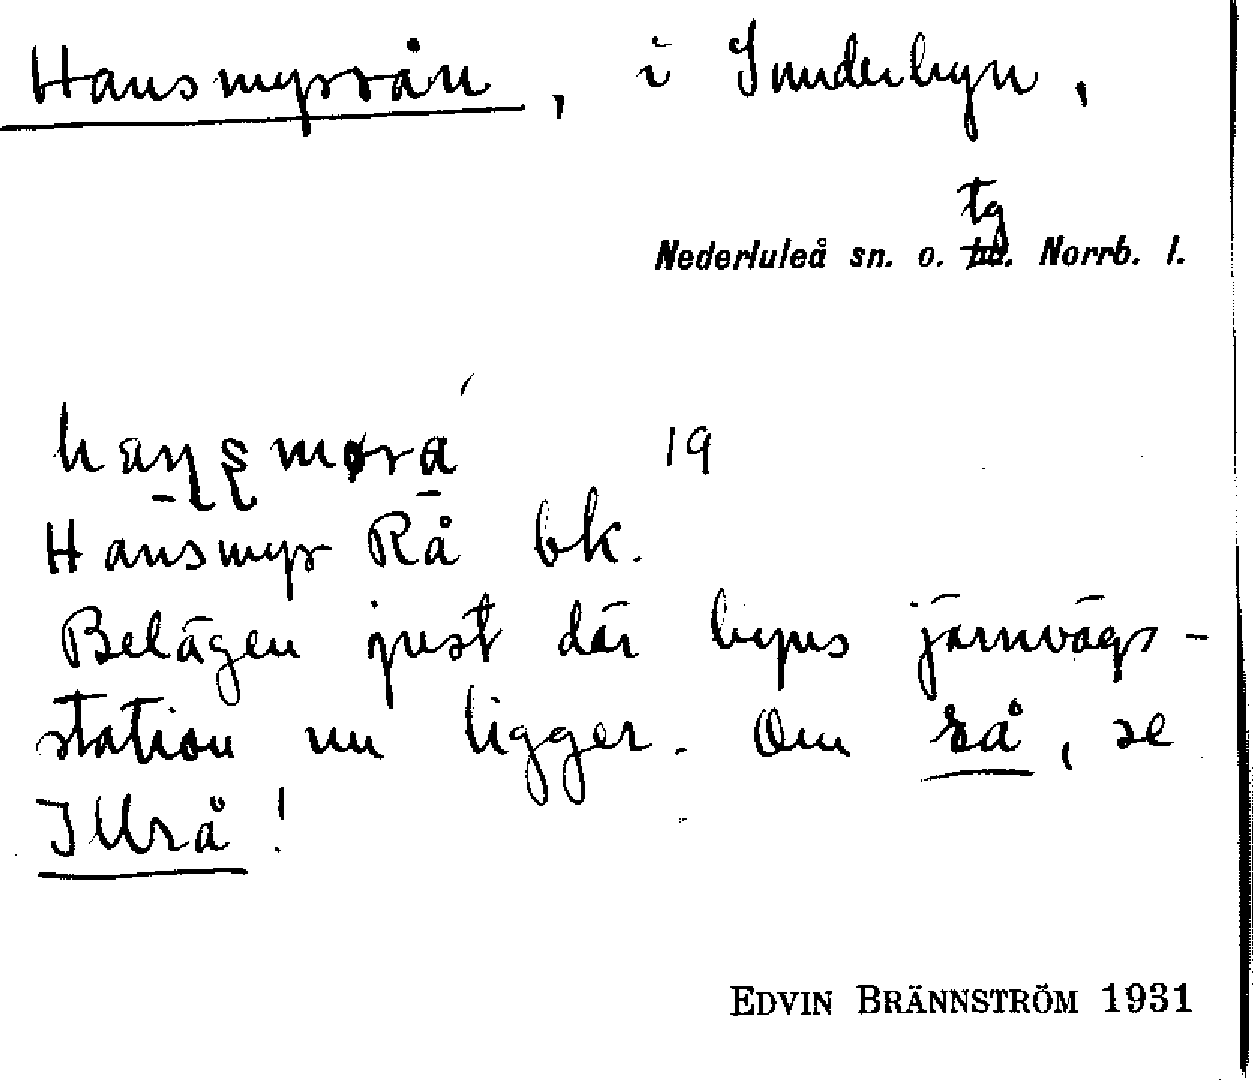 Hansmyrrån, i Sunderbyn,
tg
Nederluleå sn. o. hd. Norrb. l.
19
Hansmyr Rå bk.
Belägen just där byns järnvägs-
station nu ligger. Om rå, se
Illrå!
EDVIN BRÄNNSTRÖM 1931